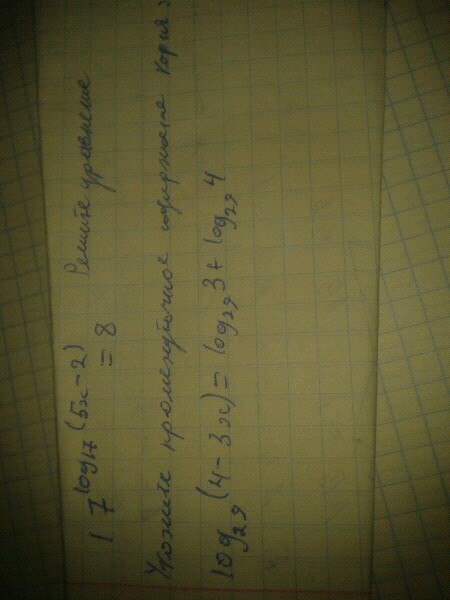 17^log₁₇(5x-2) = 8 Решите уравнение
Укажите промежуточное содержание корня
log₂₉(4-3x) = log₂₉3 + log₂₉4